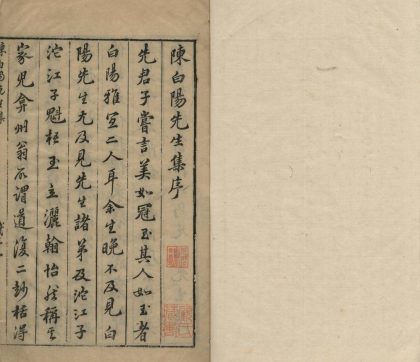 陳白陽先生集序
先君子嘗言美如冠玉其人如玉者
白陽雅宜二人耳余生晚不及見白
陽先生尤及見先生諸弟及沱江子
沱江子魁梧玉立灑翰怡然稱其
家兒弇州翁所謂道復二妙括得